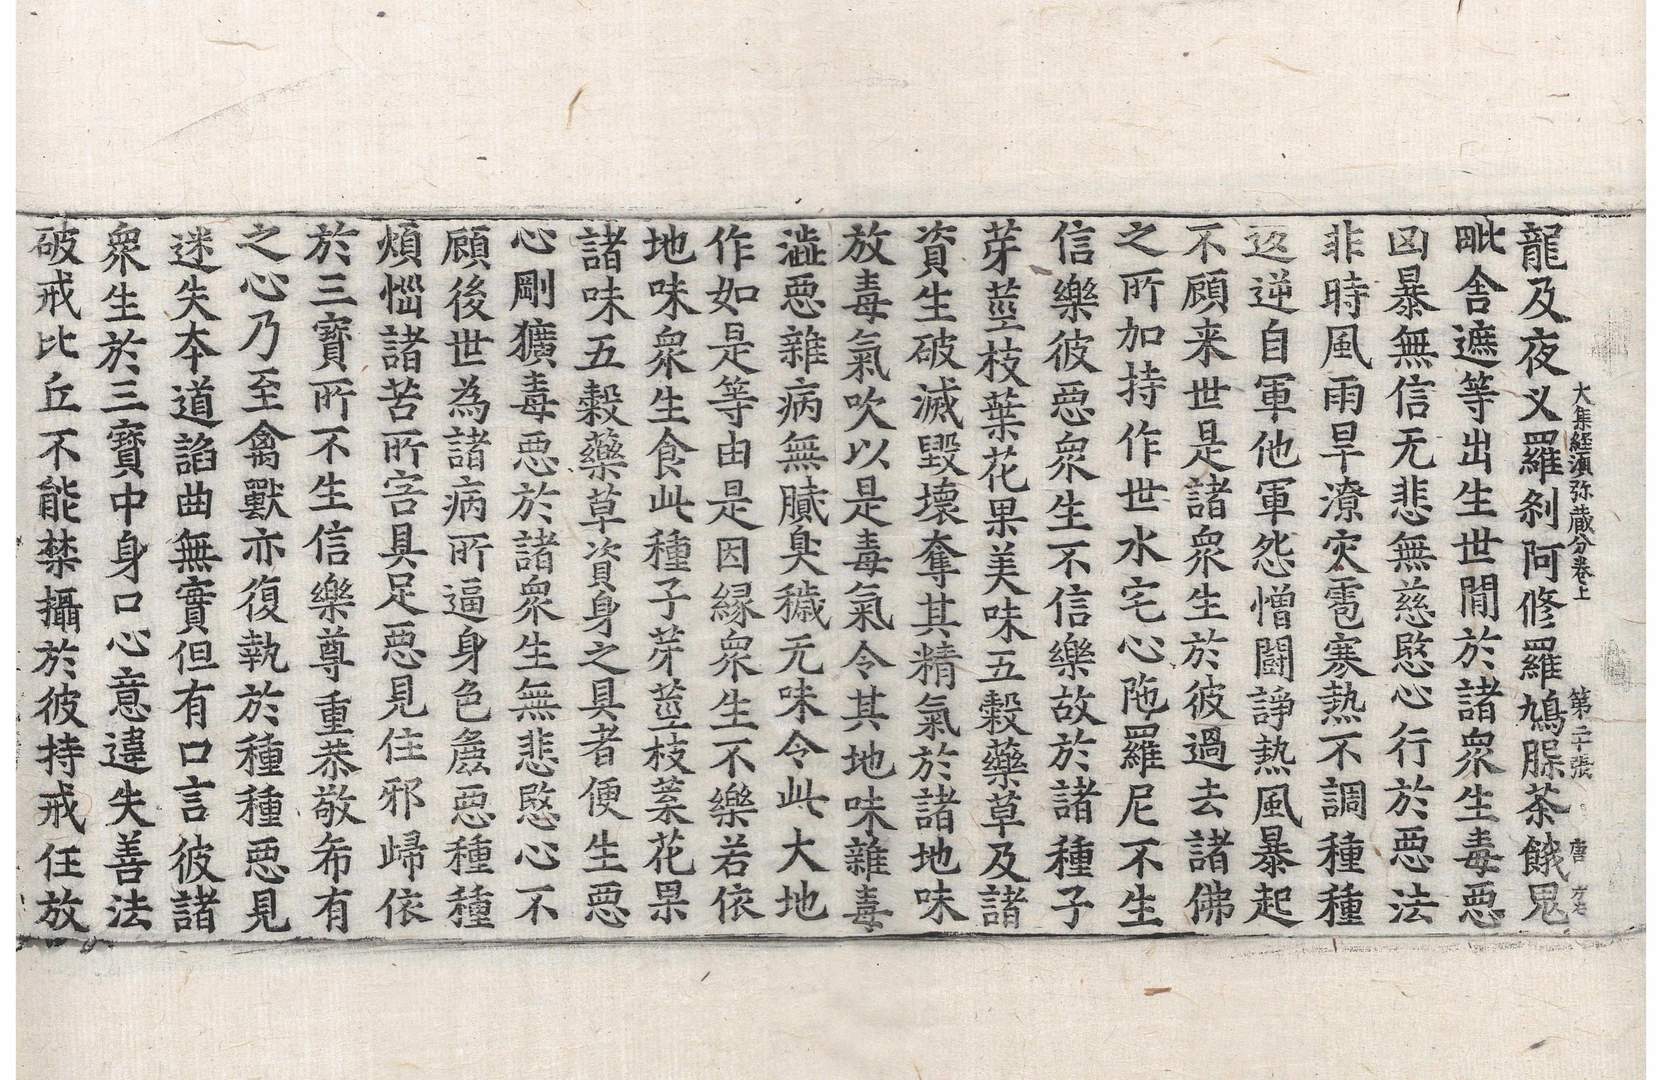 大集經湏弥藏分卷上　第二十張　唐
龍及夜叉羅刹阿修羅鳩脲茶餓鬼
毗舍遮等出生世閒於諸衆生毒惡
凶暴無信无悲無慈愍心行於惡法
非時風雨旱潦灾雹寒熱不調種種
返逆自軍他軍怨憎鬪諍熱風暴起
不顧来世是諸衆生於彼過去諸佛
之所加持作世水宅心陁羅尼不生
信樂彼惡衆生不信樂故於諸種子
芽莖枝葉花果美味五穀藥草及諸
資生破滅毀壞奪其精氣於諸地味
放毒氣吹以是毒氣令其地味雜毒
澁惡雜病無膩臭穢无味令此大地
作如是等由是因緣衆生不樂若依
地味衆生食此種子芽莖枝葉花果
諸味五穀藥草資身之具者便生惡
心剛獷毒惡於諸衆生無悲愍心不
顧後世為諸病所逼身色麁惡種種
煩惱諸苦所害具足惡見住邪歸依
於三寳所不生信樂尊重恭敬希有
之心乃至禽獸亦復執於種種惡見
迷失本道諂曲無實但有口言彼諸
衆生於三寳中身口心意違失善法
破戒比丘不能禁攝於彼持戒任放